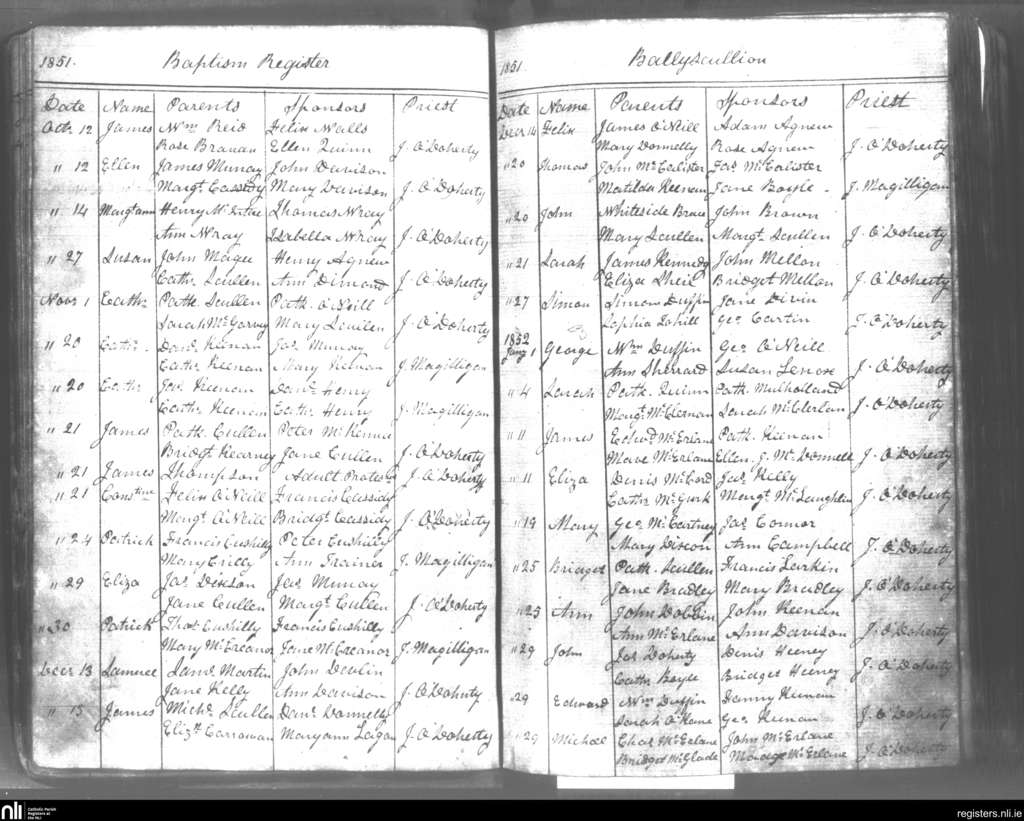 1851. Baptism Register
Date Name Parents Sponsors Priest
Octr 12 James Wm Reid Felix Walls
Rose Branan Ellen Quinn J. O'Doherty
" 12 Ellen James Murray John Davison
Margt Cassidy Mary Davison J. O'Doherty
" 14 Margt ann Henry Thomas Wray
Ann Wray Isabella Wray J. O'Doherty
" 27 Susan John Magee Henry Agnew
Cathr. Scullen Ann Dimond J. O'Doherty
Novr 1 Cathr. Patk Scullen Patk. O'Neill
Sarah McGarvey Mary Scullen J. O'Doherty
" 20 Cathr. Danl. Keenan Jas. Murray
Cathr. Keenan Mary Keenan J. Magilligan
" 20 Cathr Jas. Keenan Danl. Henry
Cathr. Keenan Cathr. Henry J. Magilligan
" 21 James Patk. Cullen Peter McKenna
Bridgt Kearney Jane Cullen J. O'Doherty
" 21 James Thompson Adult J. O'Doherty
" 21 Felix O'Neill Francis Cassidy
Margt. O'Neill Bridgt. Cassidy J. O'Doherty
" 24 Patrick Francis Cushilly Peter Cushilly
Mary Crilly Ann Trainer J. Magilligan
" 29 Eliza Jas. Dixson Jas. Murray
Jane Cullen Margt. Cullen J. O'Doherty
" 30 Patrick Thos. Cushilly Francis Cushilly
Mary McCreanor Jane McCreanor J. Magilligan
Decr 13 Samuel Saml. Martin John Devlin
Jane Kelly Ann Davison J. O'Doherty
" 15 James Michl. Scullen Danl. Donnelly
Elizth Maryann Lagan J. O'Doherty
1851 Ballyscullion
Date Name Parents Sponsors Priest
Decr 14 Felix James O'Neill Adam Agnew
Mary Donnelly Rose Agnew J. O'Doherty
" 20 Thomas John McCalister Jas. McCalister
Matilda Keenan Jane Boyle. J. Magilligan
" 20 John Whiteside Bruce John Brown
Mary Scullen Margt. Scullen J. O'Doherty
" 21 Sarah James Kennedy John Mellon
Eliza Sheil Bridget Mellon J. O'Doherty
" 27 Simon Simon Duffin Jane Divin
Sophia Cahill Geo. Cartin J. O'Doherty
1852
Jany 1 George Wm Duffin Geo. O'Neill
Ann Sherrard Susan Lenox J. O'Doherty
" 4 Sarah Patk. Quinn Patk. Mulholland
Margt. McClernan Sarah McClerlan J. O'Doherty
" 11 James Edwd McErlane Patk. Keenan
McErlane Ellen J. McDonnell J. O'Doherty
" 11 Eliza Denis McCord Jas. Kelly
Cathr McGurk Margt. McLaughlin J. O'Doherty
" 19 Mary Geo. McCartney Jas. Connor
Mary Dixon Ann Campbell J. O'Doherty
" 25 Bridget Patk. Scullen Francis Larkin
Jane Bradley Mary Bradley J. O'Doherty
" 25 Ann John Dobbin John Keenan
Ann McErlane Ann Davison J. O'Doherty
" 29 John Jas Doherty Denis Heeney
Cathr Boyle Bridget Heeney J. O'Doherty
" 29 Edward Wm Duffin Danny Keenan
Sarah O'Kane Geo. Keenan J. O'Doherty
" 29 Michael Chas McErlane John McErlane
Bridget McGlade Madge McErlane J. O'Doherty
nli
Catholic Parish
Registers at
the NLI
registers.nli.ie